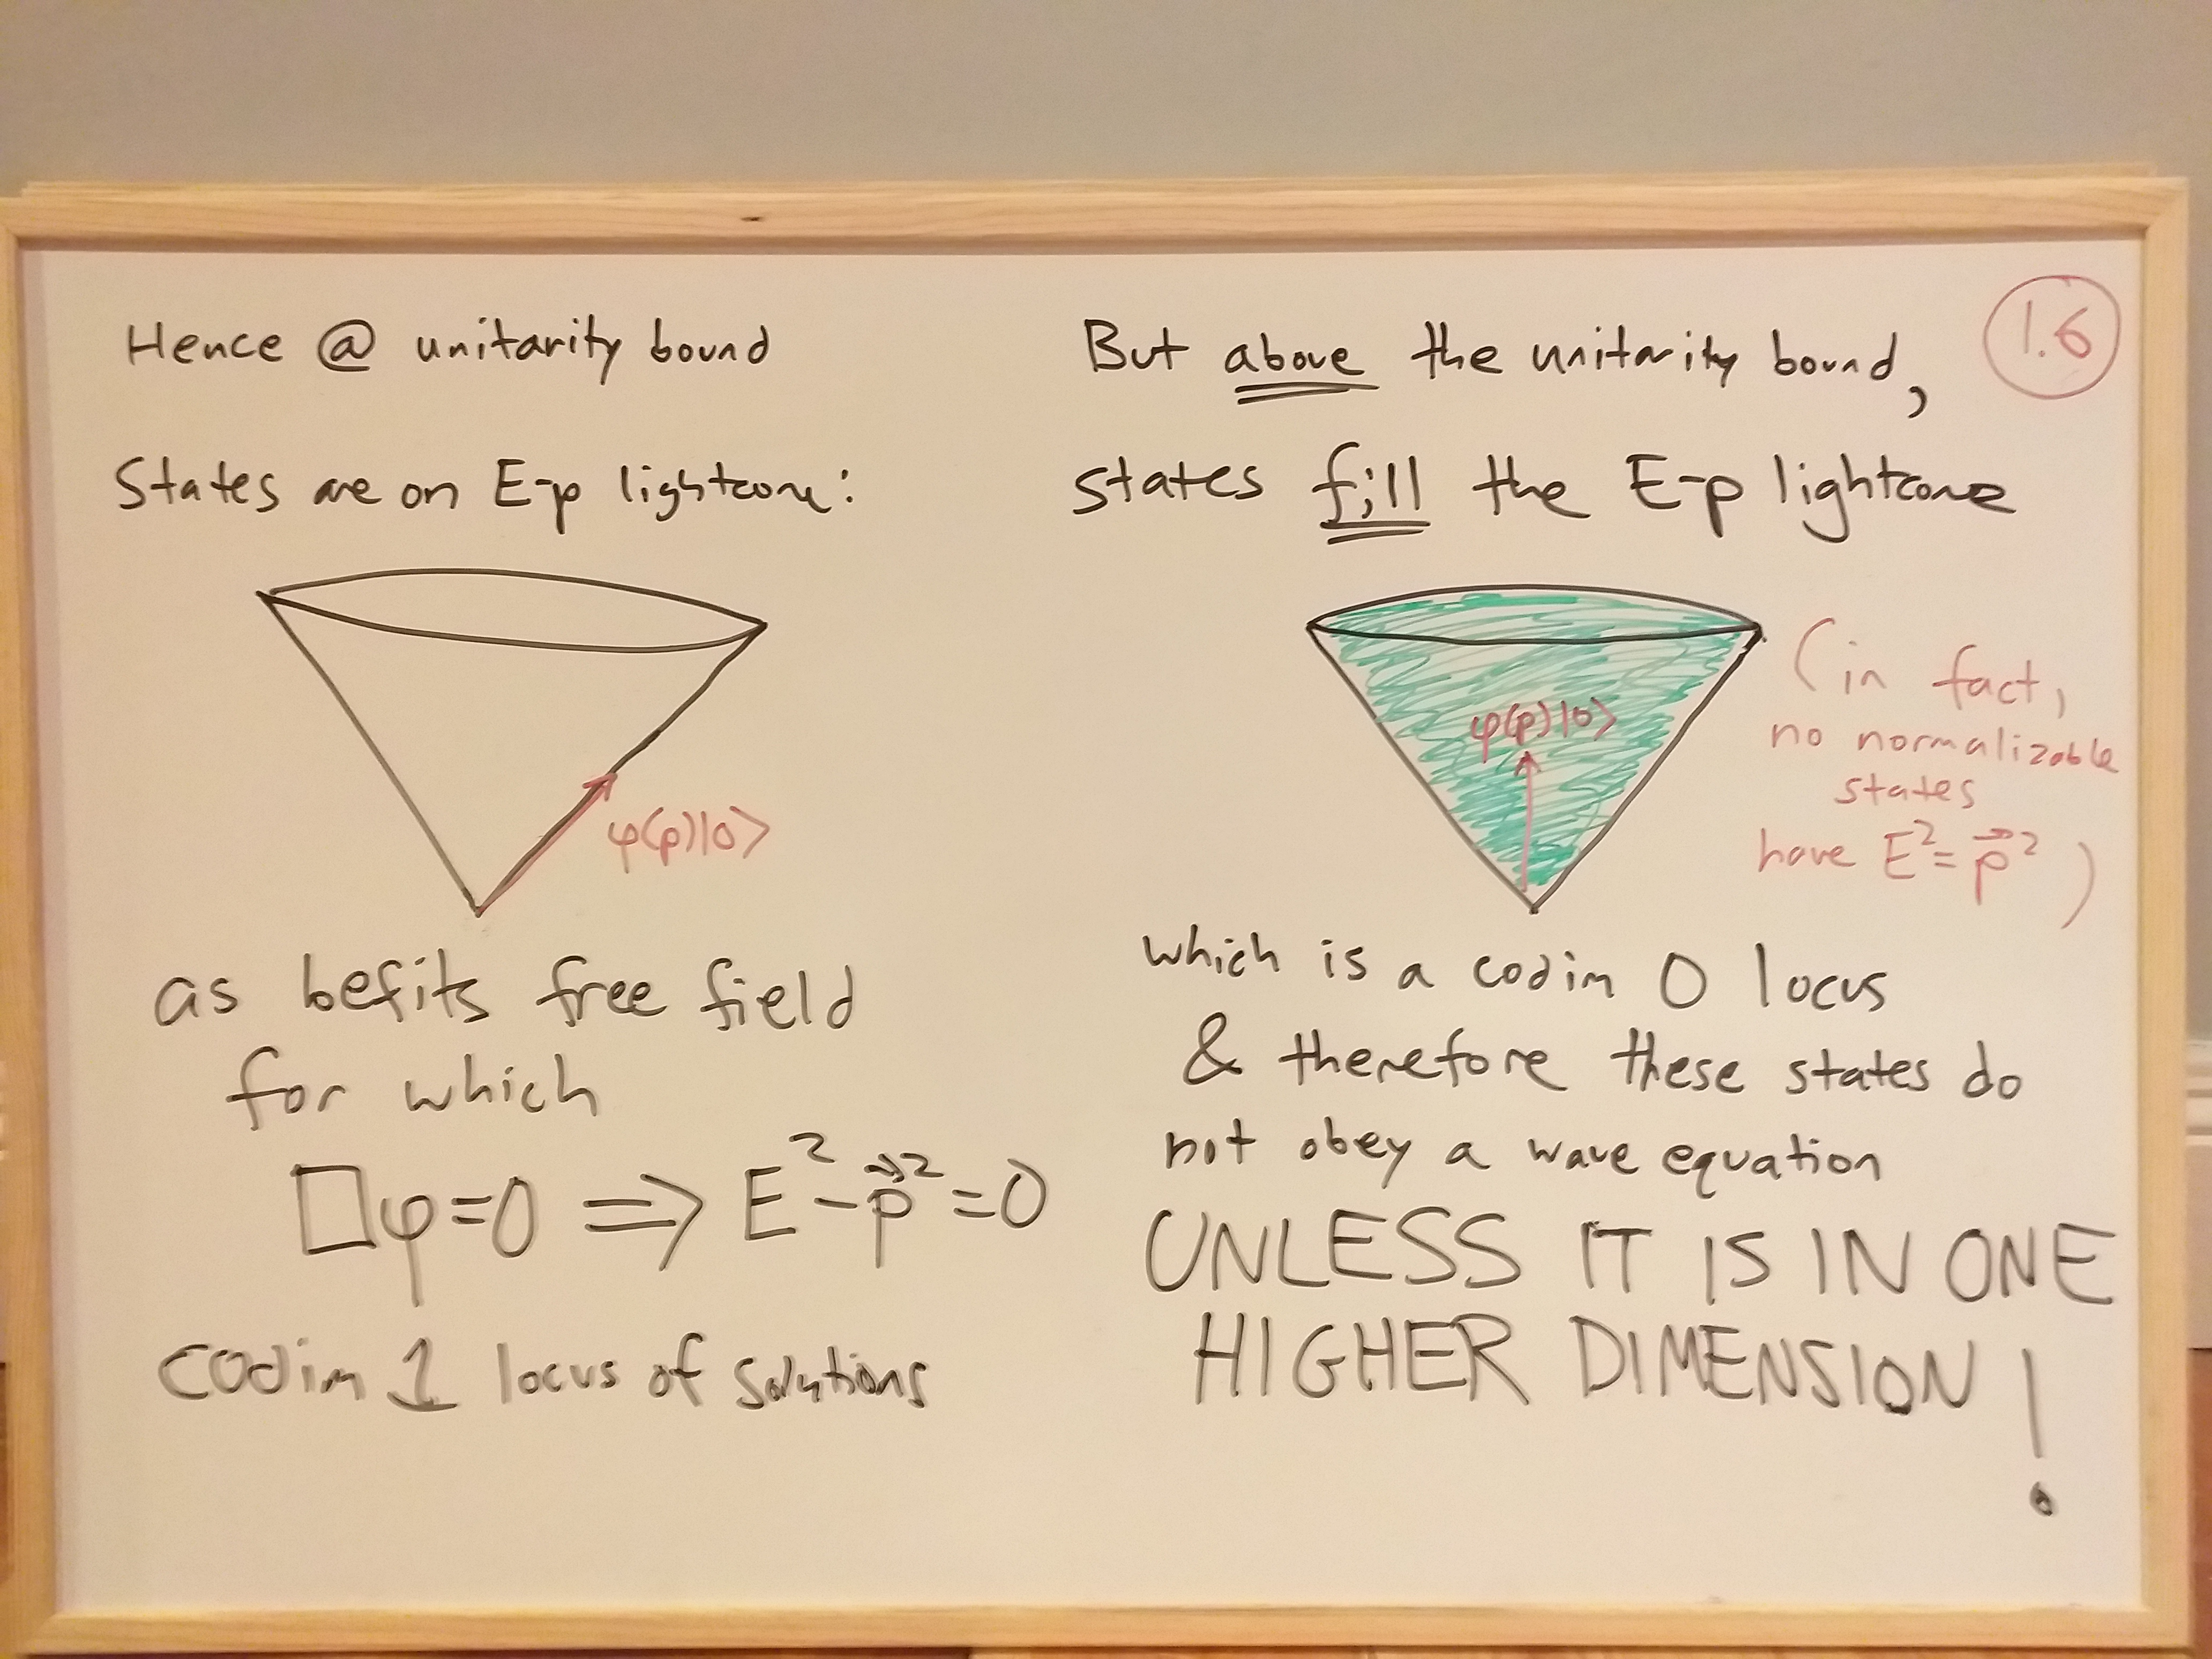 Hence @ unitarity bound
States are on E-p lightcone:
φ(p)|0>
as befits free field
for which
□φ=0 ⟹ E²-p⃗²=0
codim 1 locus of solutions
1.6
But above the unitarity bound,
states fill the E-p lightcone
φ(p)|0>
(in fact,
no normalizable
states
have E²=p⃗²)
which is a codim 0 locus
& therefore these states do
not obey a wave equation
UNLESS IT IS IN ONE
HIGHER DIMENSION!